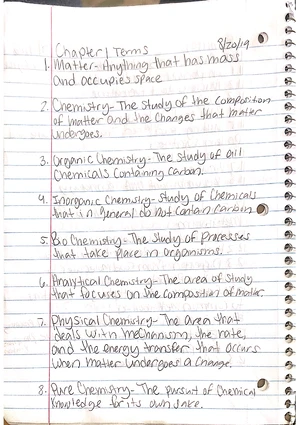 Chapter 1 Terms 8/20/19
1. Matter- Anything that has mass
and occupies space
2. Chemistry- The study of the composition
of matter and the changes that matter
undergoes.
3. Organic Chemistry- The study of all
Chemicals Containing Carbon.
4. Inorganic Chemistry- Study of Chemicals
that in general do not Contain Carbon
5. Bio Chemistry- The Study of Processes
that take place in organisms.
6. Analytical Chemistry- The area of Study
that focuses on the composition of matter.
7. Physical Chemistry- The area that
deals with mechanism, the rate,
and the energy transfer that occurs
when matter undergoes a change.
8. Pure Chemistry- The pursuit of Chemical
Knowledge for its own sake.